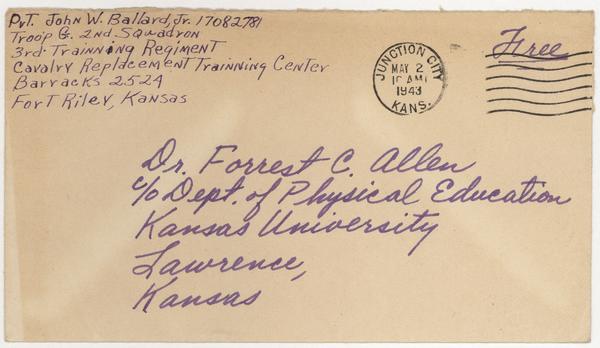 Pvt. John W. Ballard, Jr. 17082781
Troop G. 2nd Squadron
3rd. Trainning Regiment
Cavalry Replacement Trainning Center
Barracks 2524
Fort Riley, Kansas
JUNCTION CITY
MAY 2
10 AM
1943
KANS.
Free
Dr. Forrest C. Allen
c/o Dept. of Physical Education
Kansas University
Lawrence,
Kansas